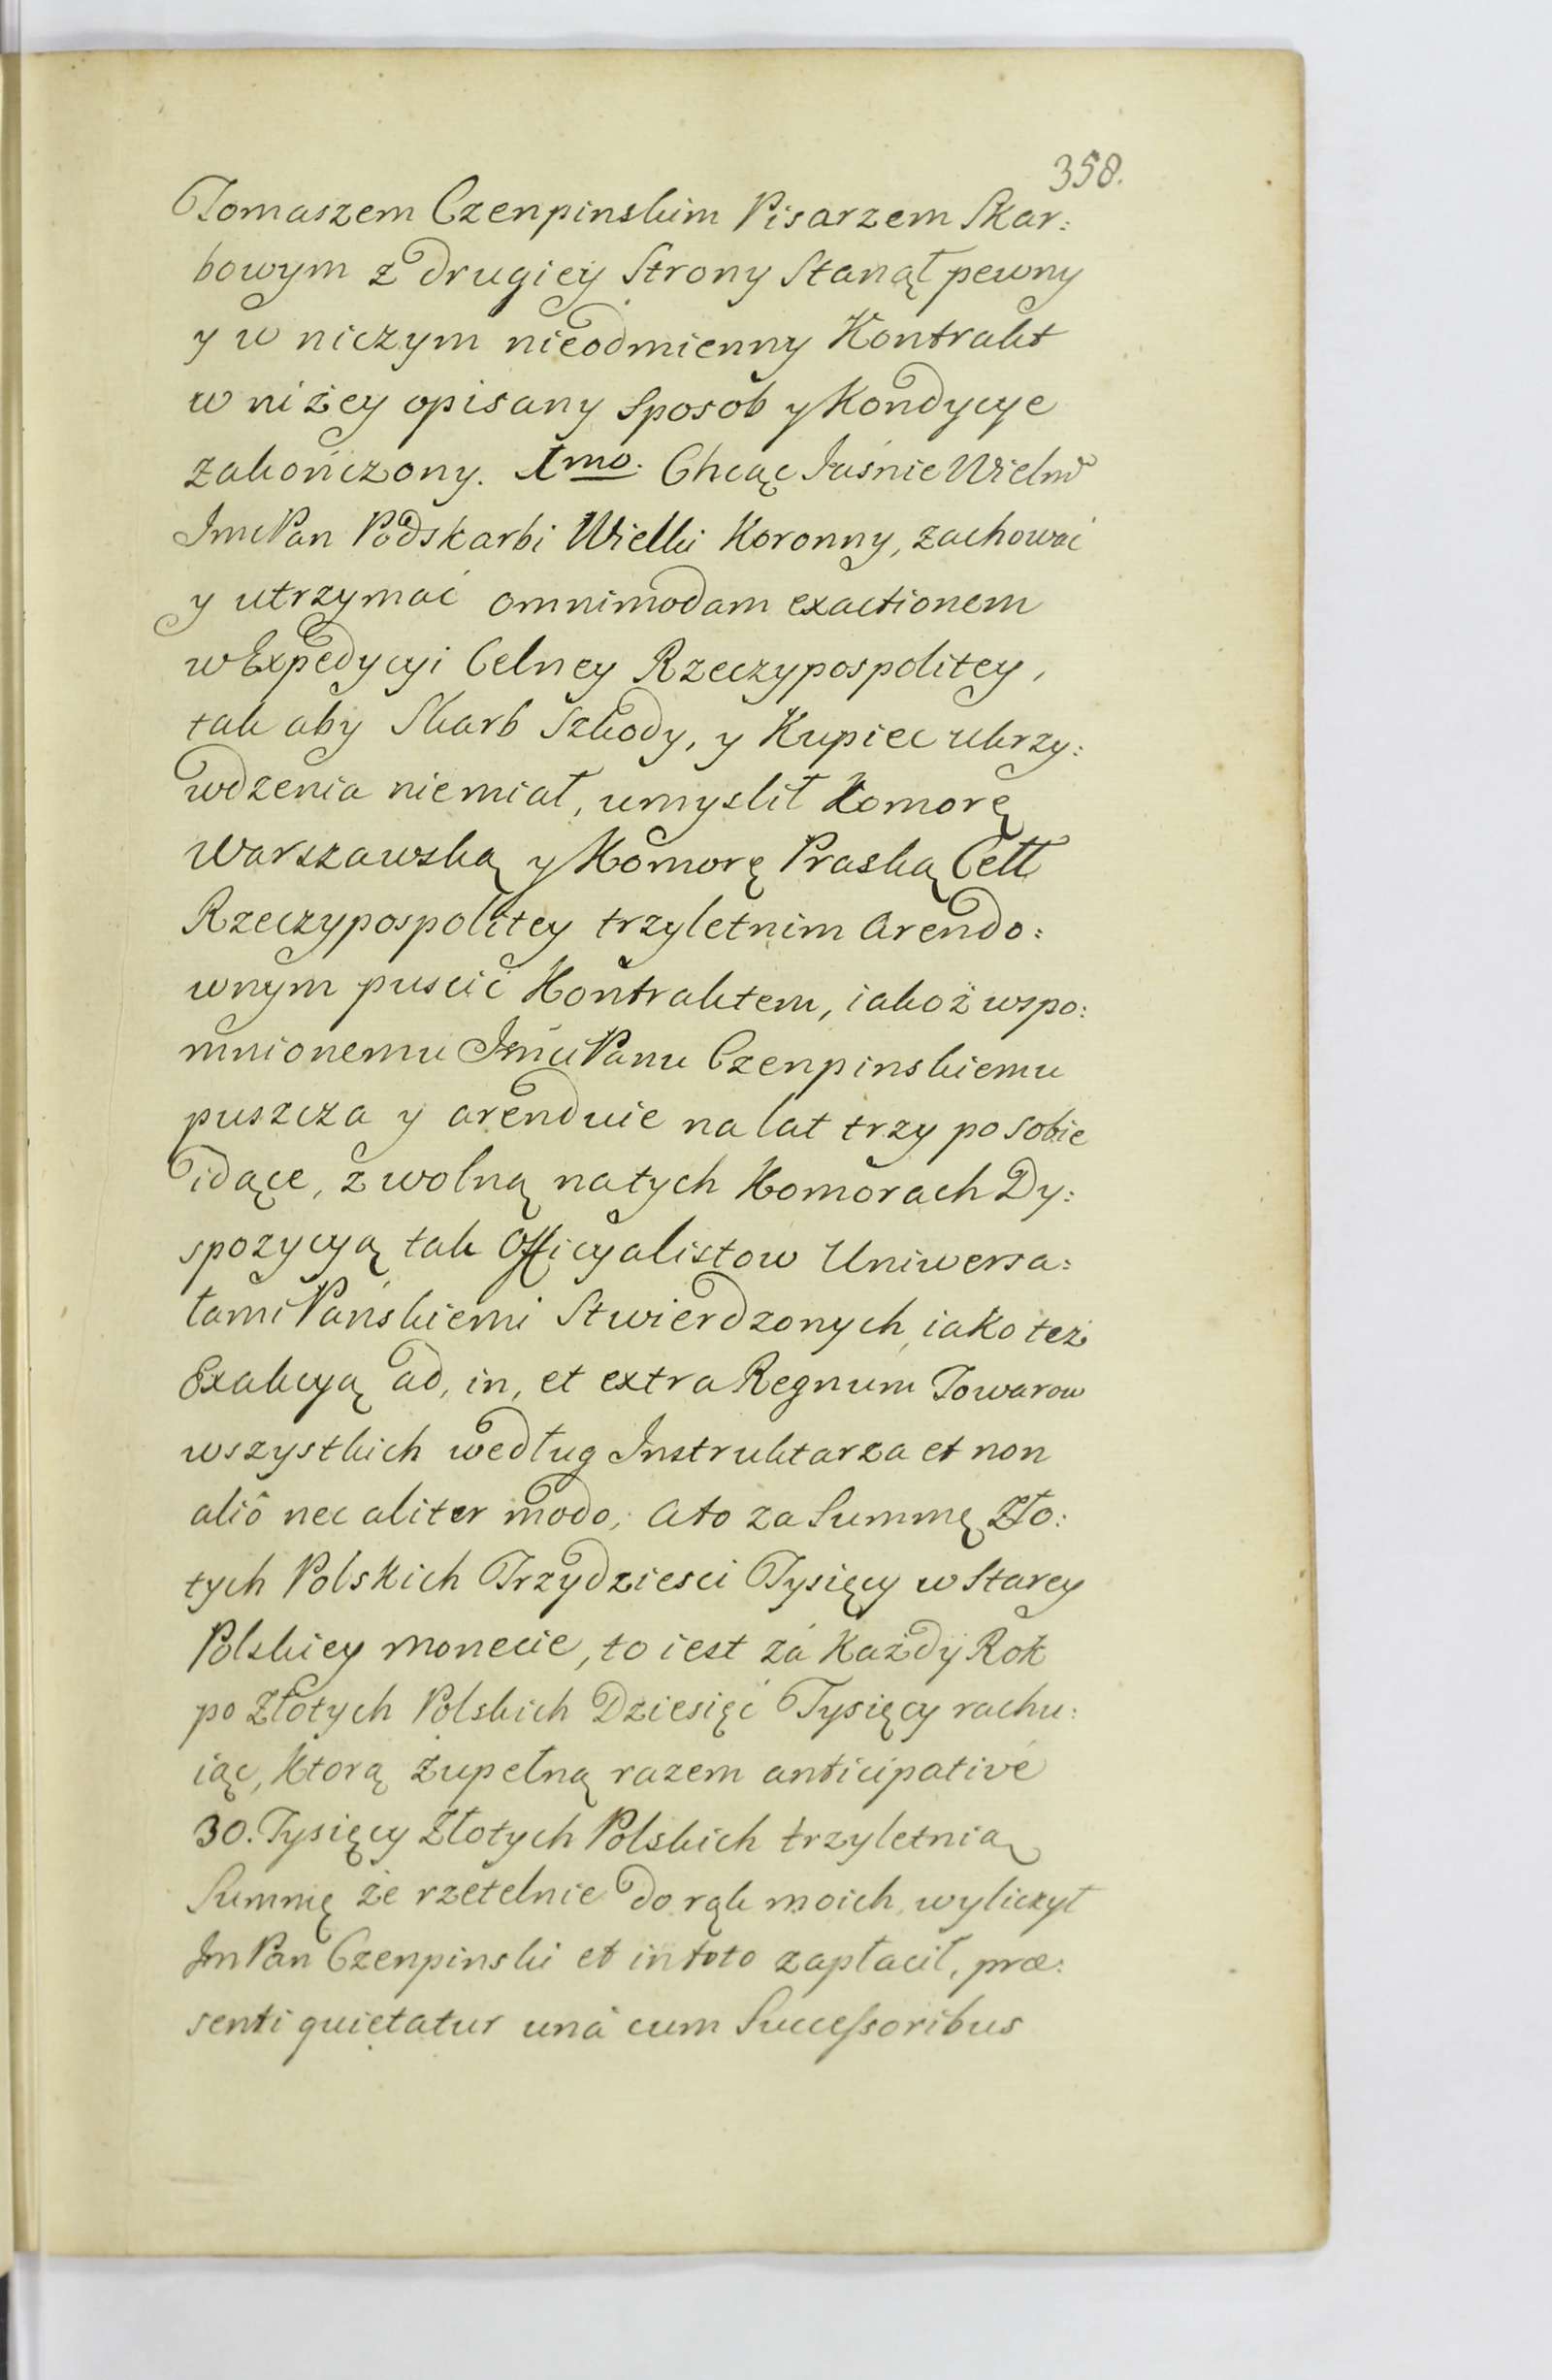 358.
Tomaszem Czenpinskim Pisarzem Skar:
bowym z drugiey Strony Stanął pewny
y w niczym nieodmienny Kontrakt
w niżey opisany sposob y Kondycye
zakończony. 1mo. Chcąc Jaśnie Wielm̃
JmćPan Podskarbi Wielki Koronny, zachować
y utrzymać omnimodam exactionem
w Expedycyi Celney Rzeczypospolitey,
tak aby Skarb Szkody, y Kupiec ukrzy:
wdzenia niemiał, umyslił Komorę
Warszawską y Komorę Praską Cełł
Rzeczypospolitey trzyletnim arendo:
wnym puscić Kontraktem, iakoż wspo:
mnionemu JmćiPanu Czenpinskiemu
puszcza y arenduie na lat trzy po sobie
idące, z wolną na tych Komorach Dy:
spozycyą tak Officyalistow Uniwersa:
łami Pańskiemi Stwierdzonych, iako też
Exakcyą ad, in, et extra Regnum Towarow
wszystkich według Instruktarza et non
aliô nec aliter modo; a to za Summę Zło:
tych Polskich Trzydziesci Tysięcy w Starey
Polskiey monecie, to iest zá Każdy Rok
po Złotych Polskich Dziesięć Tysięcy rachu:
iąc, Ktorą zupełną razem anticipativé
30. Tysięcy Złotych Polskich trzyletnią
Summę że rzetelnie do rąk moich wyliczył
Jm Pan Czenpinski et in toto zapłacił, præ:
senti quietatur uná cum Successoribus